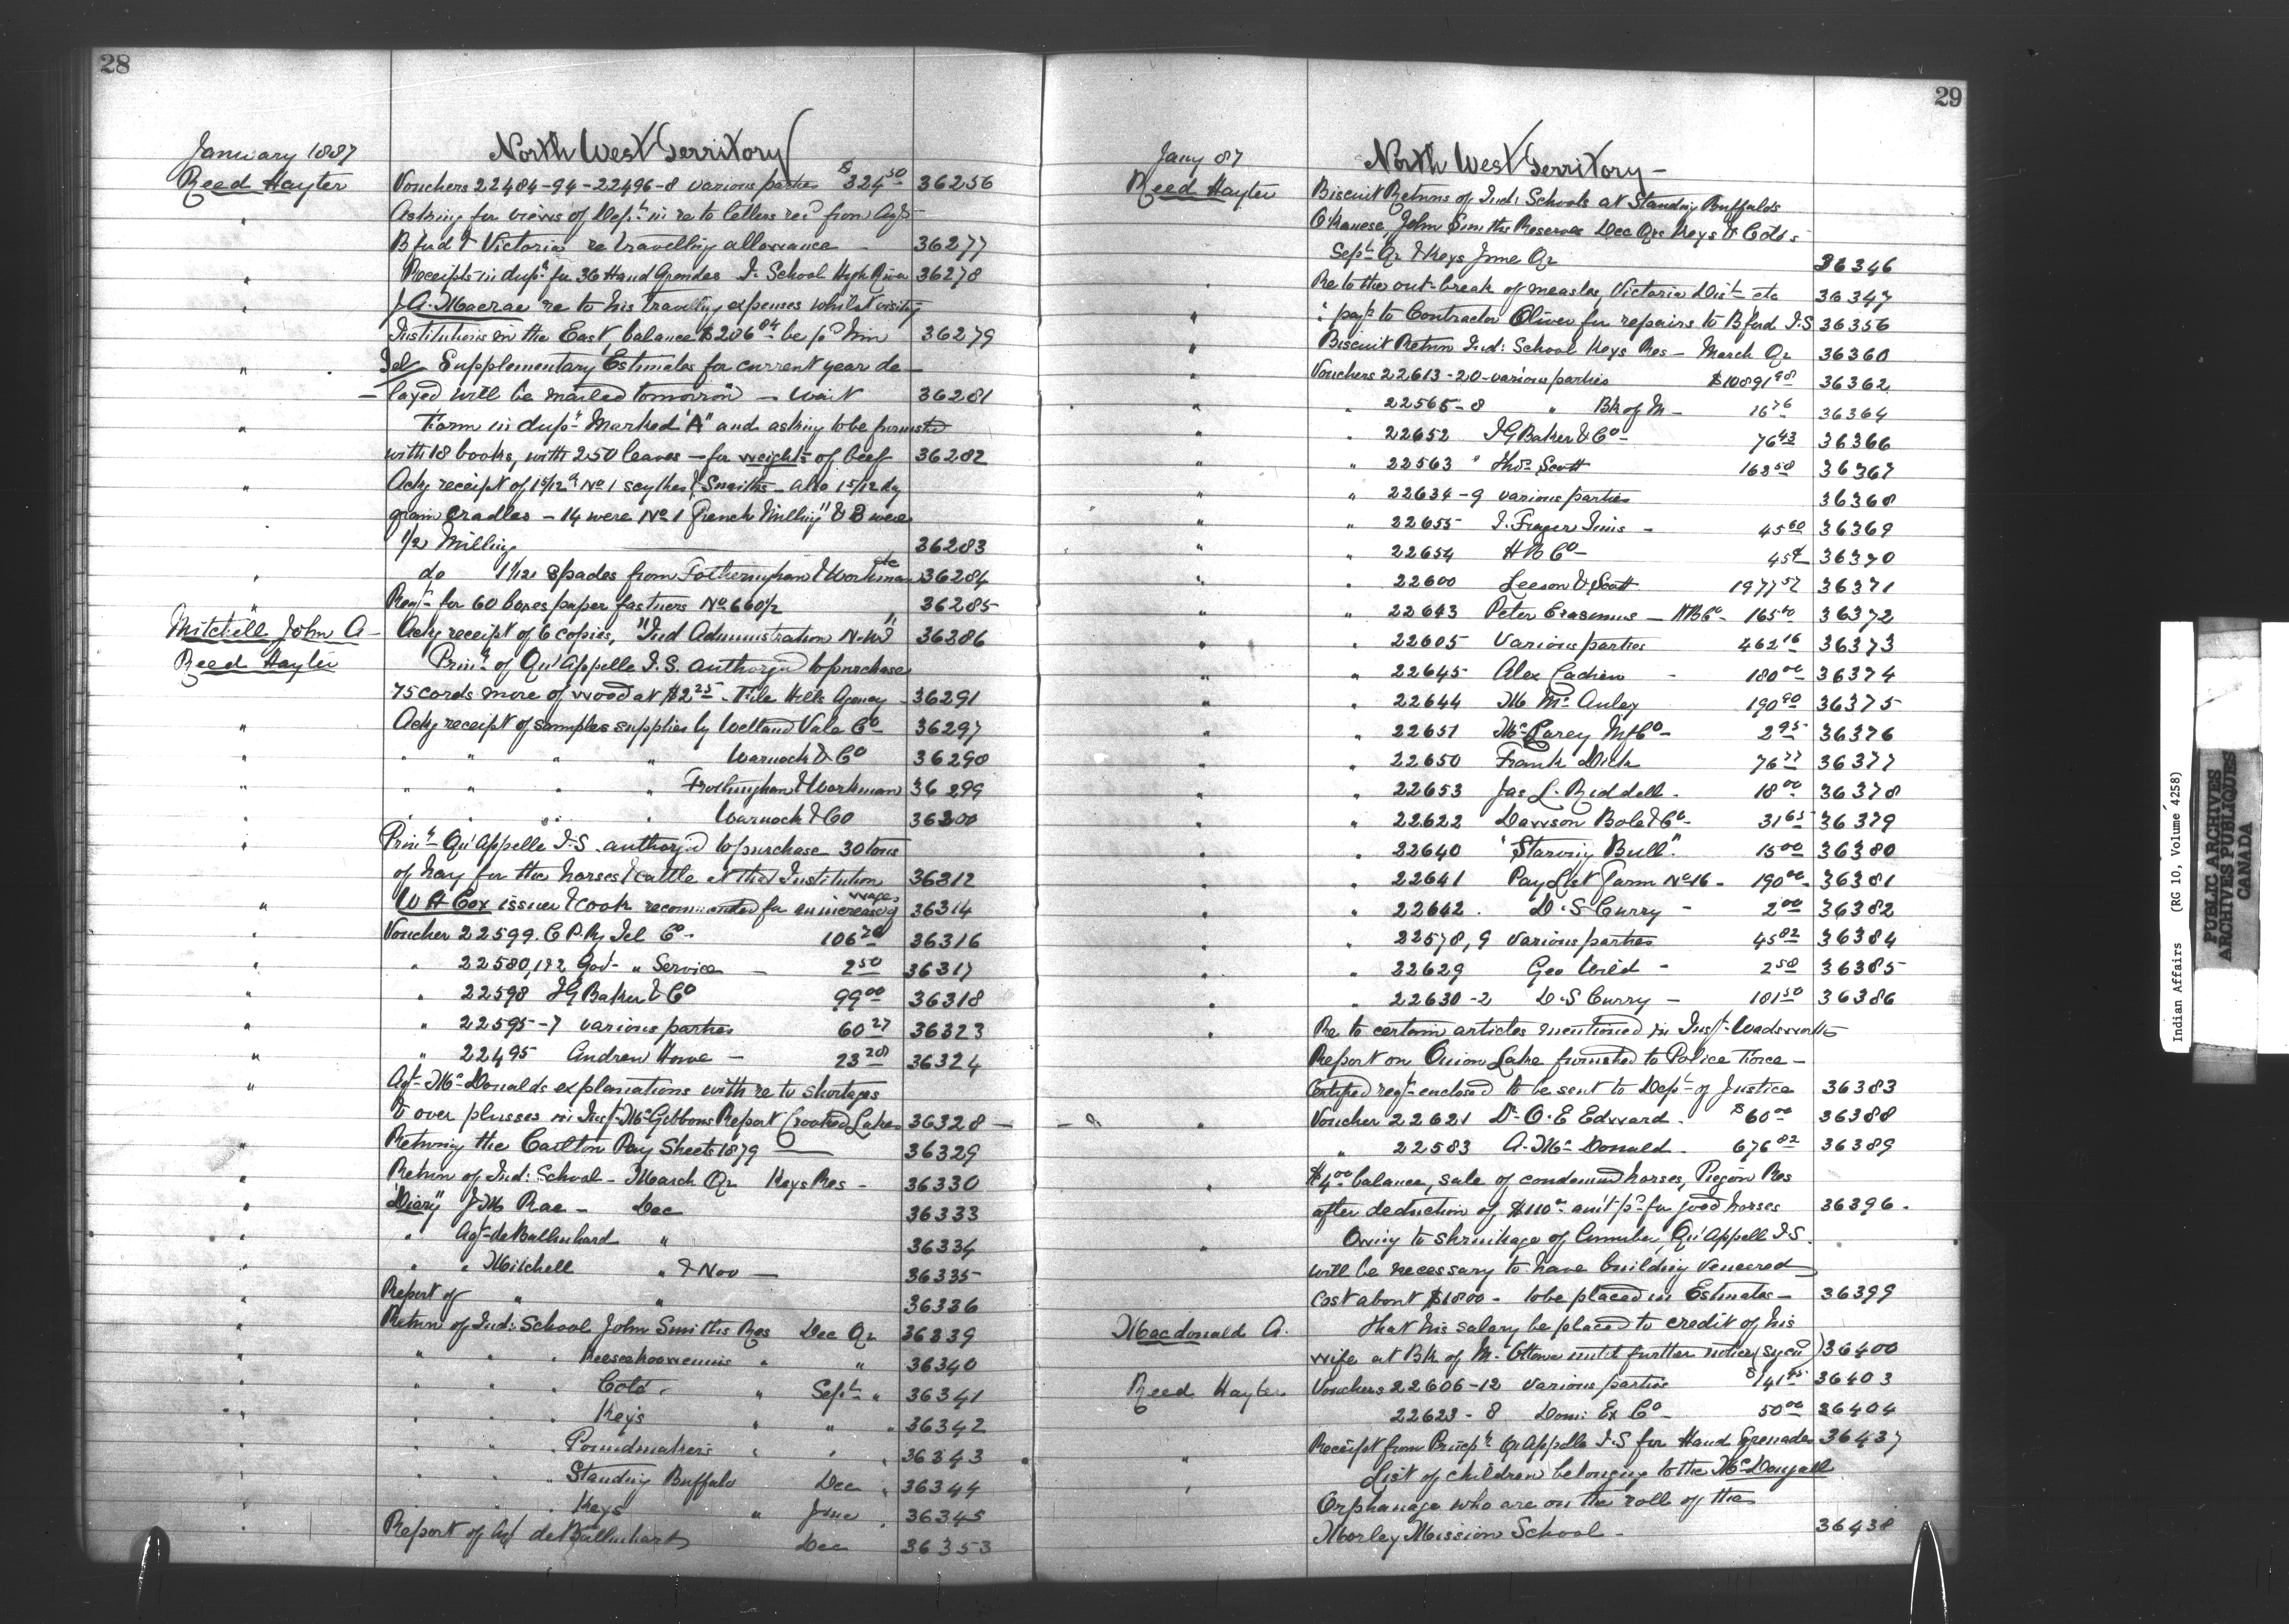 28
January 1887 North West Territory
Reed Hayter Vouchers 22484-94-22496-8 various parties $324.50 36256
" Asking for views of Dept in re to letters recd from Agts
Bfrd & Victoria re travelling allowance - 36277
" Receipts in dupte for 36 Hand Grenades I. School High River 36278
" J.A. Macrae re to his travelling expenses whilst visiting
Institutions in the East, balance $206.84 be pd him 36279
" Tel Supplementary Estimates for current year de-
layed will be mailed tomorrow - Wait 36281
" Form in dupte Marked "A" and asking to be furnished
with 18 books, with 250 leaves - for weights of beef 36282
" Ackg receipt of 1 5/12 No 1 scythes & Snaiths - also 1 5/12 dz
grain Cradles - 14 were No 1 "Grench Milling" & 3 were
1/2 Milling 36283
" do 1 1/12 spades from Fotheringham & Workman etc 36284
" Reqt for 60 boxes paper fastners No 660 1/2 36285
Mitchell John A - Ackg receipt of 6 copies, "Ind Administration N.W.T" 36286
Reed Hayter Prinl of Qu'Appelle I.S. authorized to purchase
75 cords more of wood at $2.25 - File Hills Agency - 36291
" Ackg receipt of samples supplies by Welland Vale Co 36297
" " " " " Warnock & Co 36298
" " " " " Frothingham & Workman 36299
" " " " " Warnock & Co 36300
" Prinl Qu'Appelle I.S. authorized to purchase 30 tons
of hay for the horses & cattle at that Institution 36312
" W H Cox issuer & cook recommended for an increase of wages 36314
" Voucher 22599. C.P.Ry Tel Co - 106.20 36316
" " 22580,1&2 Govt " Service - 2.50 36317
" " 22598 J G Baker & Co 99.00 36318
" " 22595-7 various parties 60.27 36323
" " 22495 Andrew Howe - 23.28 36324
" Agt McDonalds explanations with re to shortages
& over plusses in Inspt McGibbons Report Crooked Lakes 36328 -
" Returning the Carlton Pay Sheets 1879 - 36329
" Return of Ind: School - March Qr Keys Res - 36330
" "Diary" J M Rae - Dec 36333
" " Agt de Ballinhard " 36334
" " " Mitchell " & Nov - 36335
" Report of " " 36336
" Return of Ind: School John Smiths Res Dec Qr 36339
" " " " Keeseekoowenins " " 36340
" " " " Coté " Sept " 36341
" " " " Key's " " " 36342
" " " " Poundmakers " " " 36343
" " " " Standing Buffalo Dec " 36344
" " " " Keys " June " 36345
" Report of Agt de Ballinhard Dec 36353
29
Jany 87 North West Territory -
Reed Hayter Biscuit Returns of Ind: Schools at Standing Buffalds
O'Kanese, John Smiths Reserves Dec Qrs Keys & Cotés
Sept Qr & Keys June Qr 36346
" Re to the out-break of measles, Victoria Dist etc 36347
" " payt to Contractor Oliver for repairs to Bfrd I.S 36356
" Biscuit Return Ind: School Keys Res - March Qr 36360
" Vouchers 22613-20 - various parties $10891.98 36362
" " 22565-8 " Bk of M - 16.76 36364
" " 22652 J G Baker & Co - 76.43 36366
" " 22563 " Thos Scott 163.58 36367
" " 22634-9 various parties 36368
" " 22655 I. Fraser Tims - 45.60 36369
" " 22654 H B Co - 36370
" " 22600 Leeson & Scott 1977.57 36371
" " 22643 Peter Erasmus - H B Co - 165.60 36372
" " 22605 Various parties 462.16 36373
" " 22645 Alex Cadien - 180.00 36374
" " 22644 M McAuley 190.90 36375
" " 22651 McClarey Mf Co - 2.95 36376
" " 22650 Frank Dick 76.77 36377
" " 22653 Jas L. Riddell. 18.00 36378
" " 22622 Dawson Bole & Co - 31.65 36379
" " 22640 "Starving Bull". 15.00 36380
" " 22641 Pay List Farm No 16 - 190.00 36381
" " 22642. D.S Curry - 2.00 36382
" " 22578,9 Various parties 45.82 36384
" " 22629 Geo Wild - 2.58 36385
" " 22630-2 D.S Curry - 101.50 36386
" Re to certain articles mentioned in Inspt Wadsworths
Report on Onion Lake furnished to Police Force -
Certified reqt enclosed to be sent to Dept of Justice 36383
" Voucher 22621 Dr O.E Edward. $60.00 36388
" 22583 A. McDonald. 676.82 36389
" $4.00 balance, sale of condemned horses, Piegan Res
after deduction of $110.00 amt pd for good horses 36396.
" Owing to shrinkage of lumber, Qu'Appell I.S.
will be necessary to have building veneered
cost about $1800 - to be placed in Estimates - 36399
Macdonald A. that his salary be placed to credit of his
wife at Bk of M. Ottawa until further notice 36400
Reed Hayter Vouchers 22606-12 various parties $141.45 36403
22623-8 Dom: Ex Co - 50.00 36404
" Receipt from Princpl Qu'Appelle I.S for Hand Grenades 36437
" List of children belonging to the McDougall
Orphanage who are on the roll of the
Morley Mission School - 36438
Indian Affairs (RG 10, Volume 4258)
PUBLIC ARCHIVES
ARCHIVES PUBLIQUES
CANADA